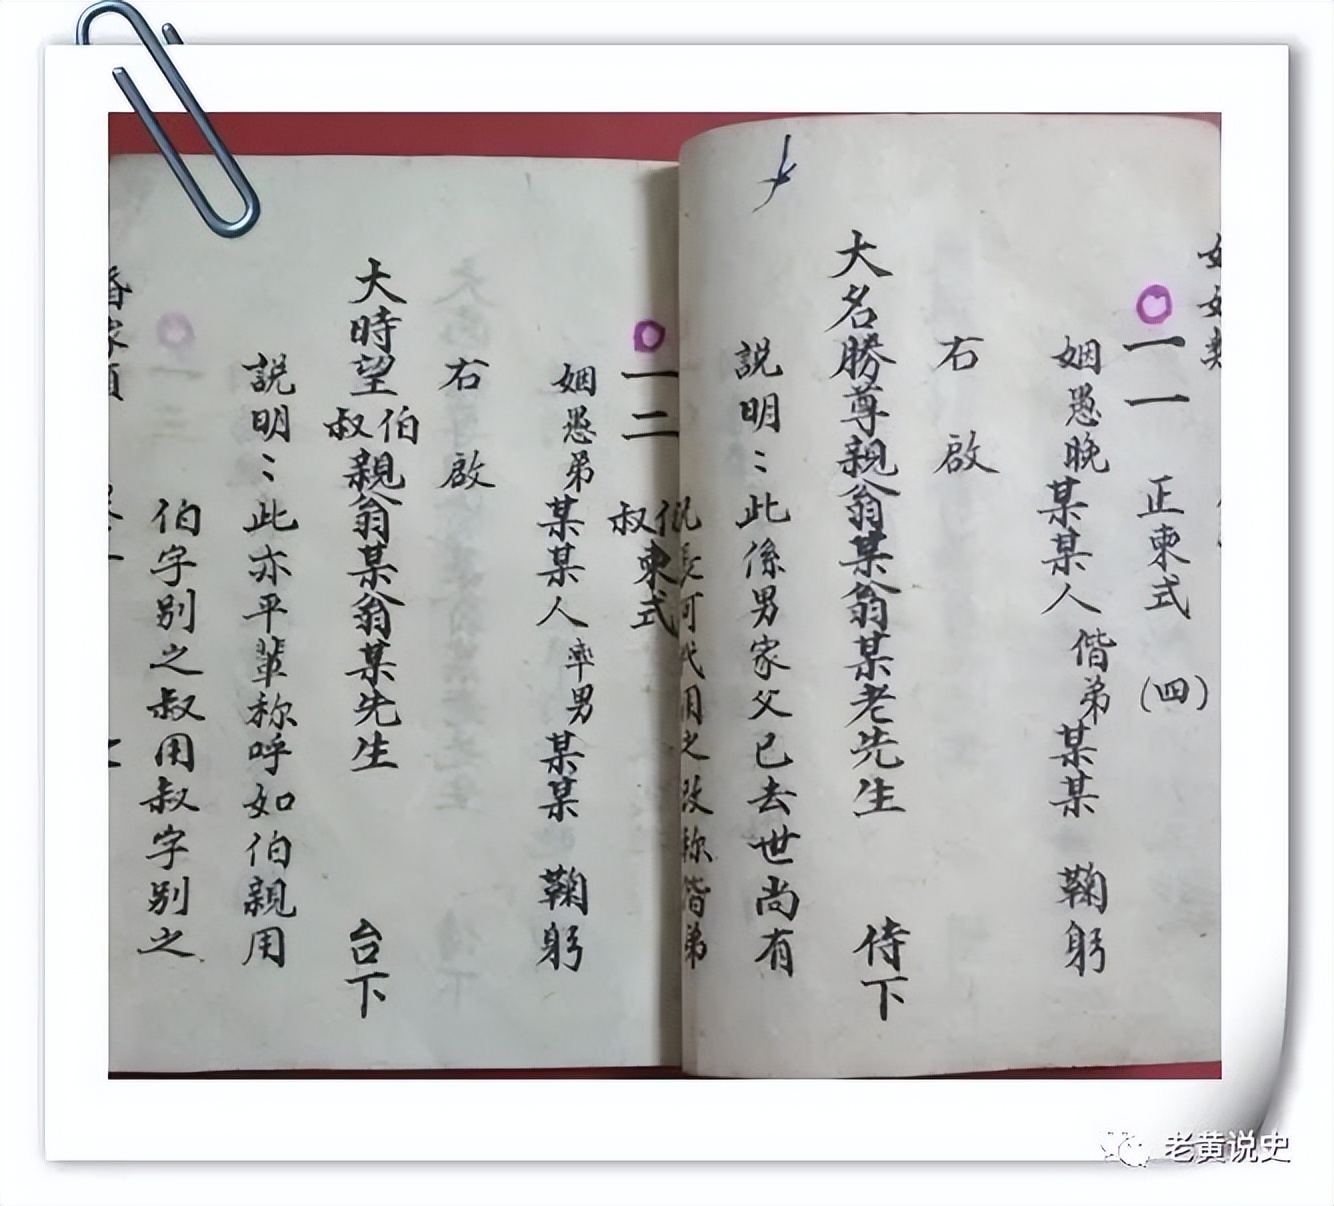 一一 正柬式 （四）
姻愚晚某某人 偕弟某某 鞠躬
右 啟
大名勝尊親翁某翁某老先生 侍下
說明：此係男家父已去世尚有
長可代用之改称偕弟
一二 伯叔柬式
姻愚弟某某人 率男某某 鞠躬
右 啟
大時望伯叔親翁某翁某先生 台下
說明：此亦平輩称呼如伯親用
伯字別之叔用叔字別之
老黄说史